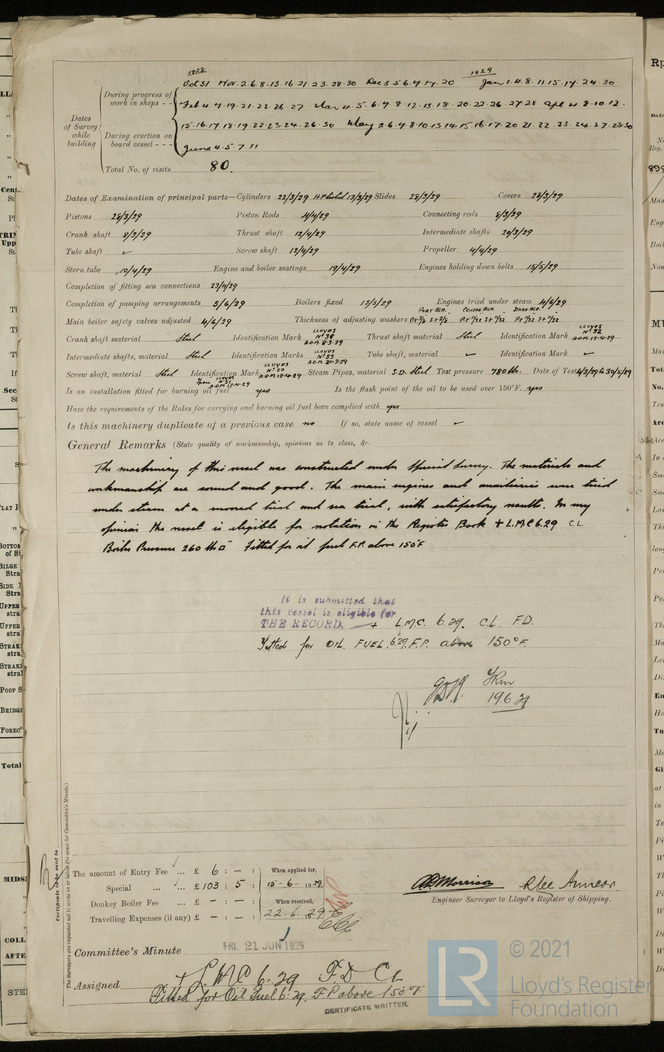 1928 1929
Oct 31 Nov. 2.6.8.13.16.21.23.28.30 Dec 3.5.6.9.17.20 Jan 1.4.8.11.15.17.24.30
During progress of work in shops - -
Feb 4.7.19.21.22.26.27 Mar 4.5.6.7.8.12.13.18.20.22.26.27.28 Apl 4.8.10.12.
Dates of Survey while building
During erection on board vessel - - -
15.16.17.18.19.22.23.24.26.30 May 3.6.7.8.10.13.14.15.16.17.20.21.22.23.24.27.28.30
June 4.5.7.11
Total No. of visits 80.
Dates of Examination of principal parts—Cylinders 22/3/29 H.P. 13/3/29 Slides 28/3/29 Covers 28/3/29
Pistons 28/3/29 Piston Rods 4/4/29 Connecting rods 5/3/29
Crank shaft 8/3/29 Thrust shaft 12/4/29 Intermediate shafts 20/3/29
Tube shaft ✓ Screw shaft 12/4/29 Propeller 4/4/29
Stern tube 10/4/29 Engine and boiler seatings 19/4/29 Engines holding down bolts 15/5/29
Completion of fitting sea connections 23/4/29
Completion of pumping arrangements 5/6/29 Boilers fixed 13/5/29 Engines tried under steam 4/6/29
Main boiler safety valves adjusted 4/6/29 Thickness of adjusting washers
Crank shaft material Steel Identification Mark LLOYDS No 38 A.O.M. 8-3-29 Thrust shaft material Steel Identification Mark LLOYDS No 32 A.O.M. 12-4-29
Intermediate shafts, material Steel Identification Marks LLOYDS No 33 A.O.M. 20-3-29 Tube shaft, material ✓ Identification Mark ✓
Screw shaft, material Steel Identification Mark LLOYDS No 30 A.O.M. 12-4-29 Steam Pipes, material S.D. Steel Test pressure 780 lbs. Date of Test 4/3/29 to 30/5/29
Is an installation fitted for burning oil fuel yes Is the flash point of the oil to be used over 150°F. yes
Have the requirements of the Rules for carrying and burning oil fuel been complied with yes
Is this machinery duplicate of a previous case no If so, state name of vessel ✓
General Remarks (State quality of workmanship, opinions as to class, &c.
The machinery of this vessel was constructed under Special Survey. The materials and
workmanship are sound and good. The main engines and auxiliaries were tried
under steam at a moored trial and sea trial, with satisfactory results. In my
opinion the vessel is eligible for notation in the Register Book + L.M.C 6.29 C.L.
Boiler Pressure 260 lbs □" Fitted for oil fuel F.P. above 150°F
It is submitted that
this vessel is eligible for
THE RECORD. + L.M.C. 6.29. C.L. F.D.
Fitted for OIL FUEL 6.29. F.P. above 150°F.
19.6.29
The amount of Entry Fee ... £ 6 : – :
Special ... ... £ 103 : 5 :
Donkey Boiler Fee ... £ – : – :
Travelling Expenses (if any) £ – : – :
When applied for, 15-6-1929
When received, 22.6.29
Engineer Surveyor to Lloyd's Register of Shipping.
Committee's Minute FRI. 21 JUN 1929
Assigned + L.M.C 6.29 F.D C.L
Fitted for Oil Fuel 6.29, F.P above 150°F
CERTIFICATE WRITTEN.
Certificate to be sent to
(The Surveyors are requested not to write on or below the space for Committee's Minute.)
LR © 2021
Lloyd's Register
Foundation